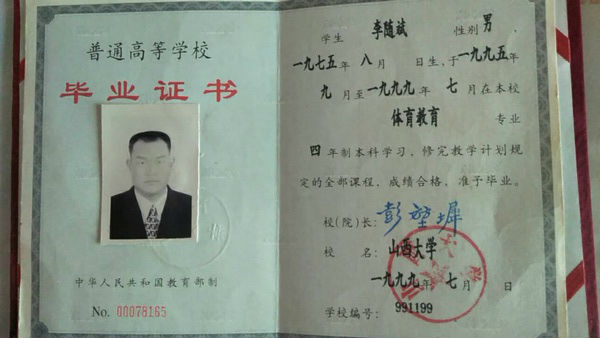 普通高等学校
毕业证书
中华人民共和国教育部制
No. 00078165
学生 李随斌 性别 男
一九七五年 八月 日生,于一九九五年
九月至一九九九年 七月在本校
体育教育 专业
四年制本科学习,修完教学计划规
定的全部课程,成绩合格,准予毕业。
校(院)长:
校 名: 山西大学
一九九九年 七月 日
学校编号: 991199